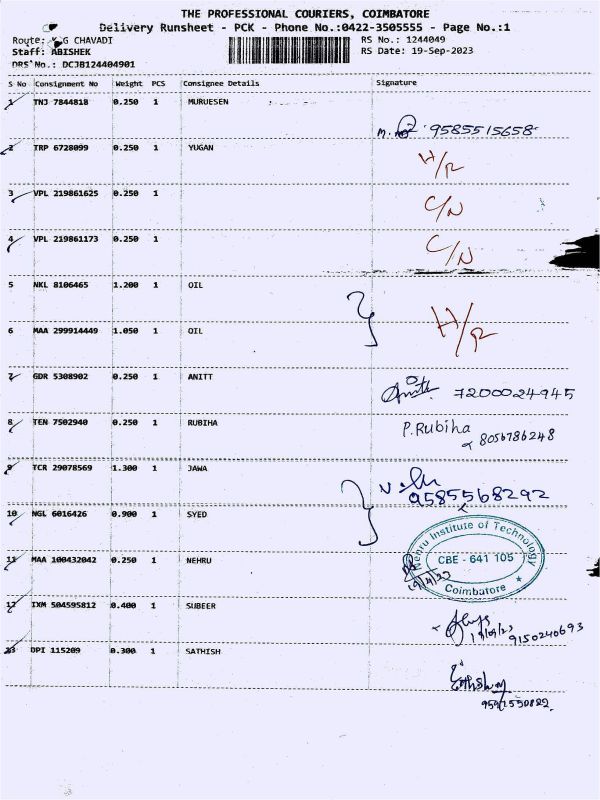 THE PROFESSIONAL COURIERS, COIMBATORE
Delivery Runsheet - PCK - Phone No.:0422-3505555 - Page No.:1
Route: G CHAVADI
RS No.: 1244049
Staff: ABISHEK
RS Date: 19-Sep-2023
DRS No.: DCJB124404901
S No Consignment No Weight PCS Consignee Details Signature
1 TNJ 7844818 0.250 1 MURUESEN
M. 9585515658
2 TRP 6728099 0.250 1 YUGAN
H/R
3 VPL 219861625 0.250 1
C/N
4 VPL 219861173 0.250 1
C/N
5 NKL 8106465 1.200 1 OIL
H/R
6 MAA 299914449 1.050 1 OIL
7 GDR 5308902 0.250 1 ANITT
7200024945
8 TEN 7502940 0.250 1 RUBIHA
P.Rubiha
8056786248
9 TCR 29078569 1.300 1 JAWA
9585568292
10 NGL 6016426 0.900 1 SYED
Nehru Institute of Technology
CBE - 641 105
Coimbatore
11 MAA 100432042 0.250 1 NEHRU
12 IXM 504595812 0.400 1 SUBEER
19/09/23 9150240693
13 DPI 115209 0.300 1 SATHISH